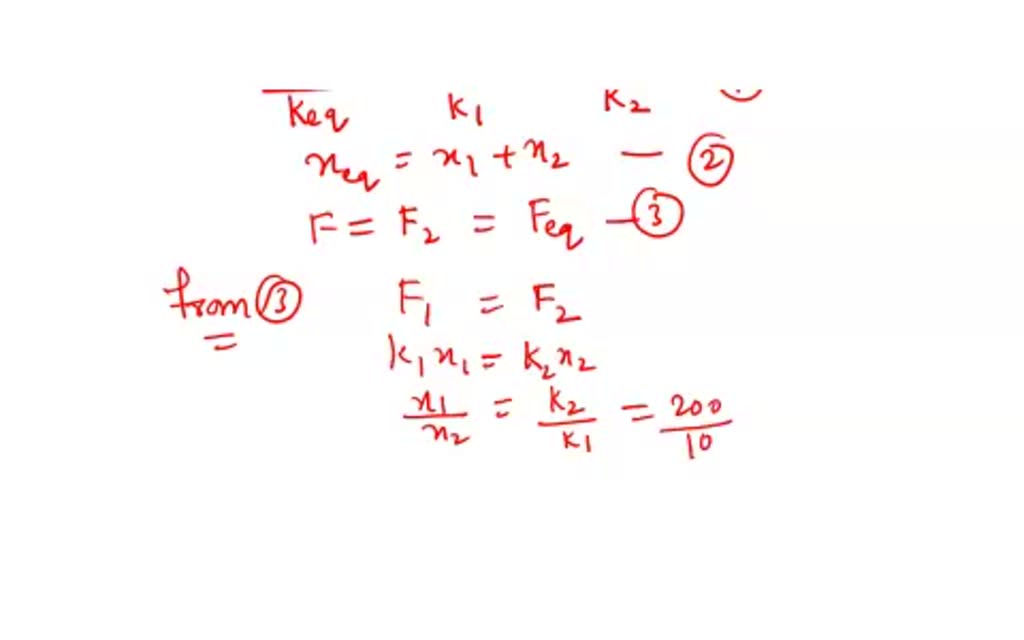 Keq K1 K2
xeq = x1 + x2 — ②
F = F2 = Feq — ③
from ③ F1 = F2
k1x1 = k2x2
x1/x2 = k2/k1 = 200/10